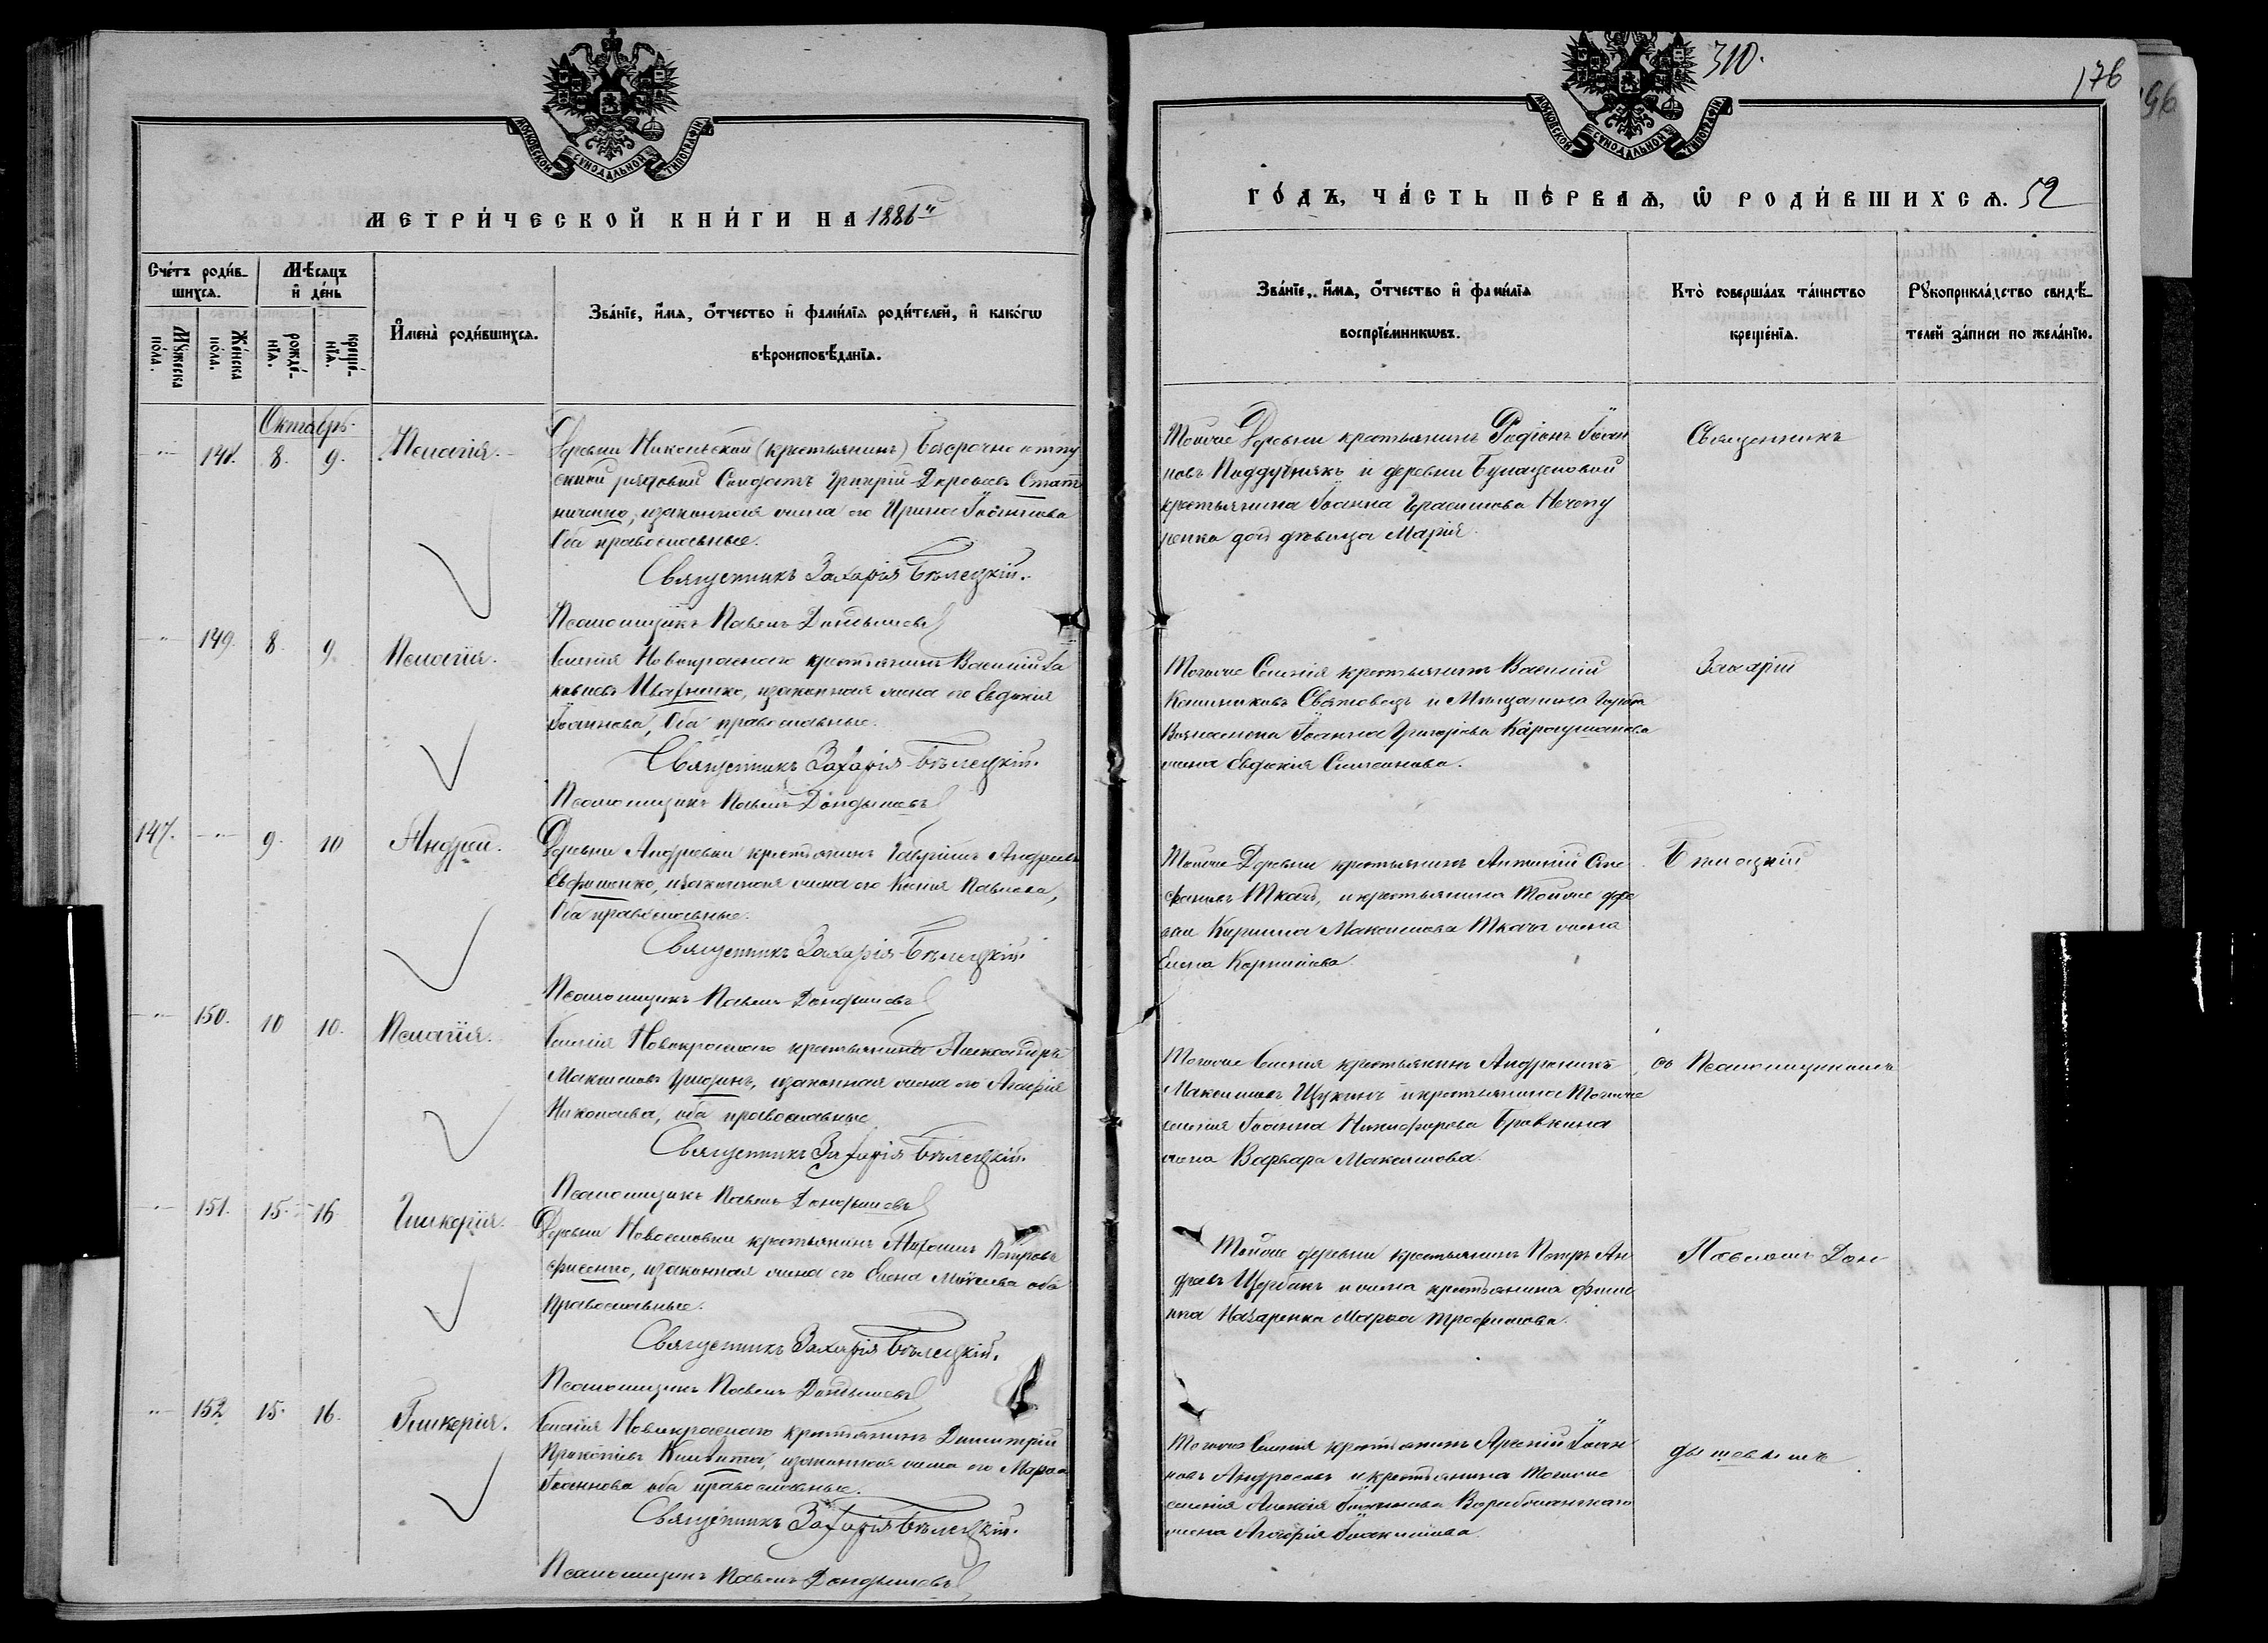 МОСКОВСКОЙ СѴНОДАЛЬНОЙ ТИПОГРАФІИ
МЕТРИ́ЧЕСКОЙ КНИ́ГИ НА 1886й
Сче́тъ роди́в-
шихсѧ.
Мѣ́сѧцъ
и҆ де́нь
Мꙋ́жеска
по́ла.
Же́нска
по́ла.
рожде́-
нїѧ.
креще́-
нїѧ.
И҆мена̀ роди́вшихсѧ.
Зва́нїе, и҆́мѧ, ѻ҆́тчество и҆ фами́лїѧ роди́телей, и҆ како́гѡ
вѣроисповѣ́данїѧ.
Октябрь.
148. 8. 9. Пелагія.
Деревни Никольской (крестьянинъ) безсрочно отпу
скной рядовый Солдатъ Григорій
законная жена его Ирина Іоаннова
Оба православные.
Священникъ Захарія Бѣлецкій.
Псаломщикъ Павелъ Дондышевъ
149. 8. 9. Пелагія.
Селенія Новокраснаго крестьянинъ Василій Іа
ковлевъ Ивахненко, изаконная жена его Евдокія
Іоаннова, Оба православные.
Священникъ Захарія Бѣлецкій.
Псаломщикъ Павелъ Дондышевъ
147. 9. 10 Андрей.
Деревни Андреевки крестьянинъ Гавріилъ Андреевъ
Евфименко, изаконная жена его Ксенія Павлова,
Оба православные.
Священникъ Захарія Бѣлецкій.
Псаломщикъ Павелъ Дондышевъ
150. 10 10. Пелагія.
Селенія Новокраснаго крестьянинъ Александръ
Максимовъ изаконная жена его Агафія
оба православные
Священникъ Захарія Бѣлецкій.
Псаломщикъ Павелъ Дондышевъ
151. 15. 16 Гликерія.
Деревни Новоселовки крестьянинъ Михаилъ Петровъ
изаконная жена его Елена оба
православные.
Священникъ Захарія Бѣлецкій.
Псаломщикъ Павелъ Дондышевъ
152 15. 16. Гликерія.
Селенія Новокраснаго крестьянинъ Димитрій
Прокопіевъ изаконная жена его Марѳа
Іоаннова оба православные.
Священникъ Захарія Бѣлецкій.
Псаломщикъ Павелъ Дондышевъ
310.
176
МОСКОВСКОЙ СѴНОДАЛЬНОЙ ТИПОГРАФІИ
ГО́ДЪ, ЧА́СТЬ ПЕ́РВАѦ, Ѡ҆ РОДИ́ВШИХСѦ. 52
Зва́нїе, и҆́мѧ, ѻ҆́тчество и҆ фами́лїѧ
воспрїе́мникѡвъ.
Кто̀ соверша́лъ та́инство
креще́нїѧ.
Рꙋкоприкла́дство свидѣ́-
телей за́писи по жела́нїю.
Тойже Деревни крестьянинъ Родіонъ Іоан
новъ Поддубнякъ и деревни
крестьянина Іоанна Герасимова
дочь дѣвица Марія.
Священникъ
Тогоже Селенія крестьянинъ Василій
и Мѣщанина города
Вознесенска Іоанна Григоріева
жена Евдокія Симеонова.
Захарій
Тойже Деревни крестьянинъ Антоній Сте
фановъ Ткачъ, икрестьянина Тойже дере
вни Кирилла Максимова Ткача жена
Елена Корнилова.
Бѣлецкій
Тогоже Селенія крестьянинъ Андроникъ
Максимовъ Щукинъ икрестьянина Тогоже
селенія Іоанна Никифорова
жена Варвара Максимова.
съ Псаломщикомъ
Тойже деревни крестьянинъ Петръ Ан
дреевъ Щербакъ ижена крестьянина Фили
ппа Назаренка Марѳа Трофимова.
Павломъ Дон
Тогоже Селенія крестьянинъ Арсеній Іоан
новъ икрестьянина Тогоже
селенія Алексія
жена Агафія
дышевымъ